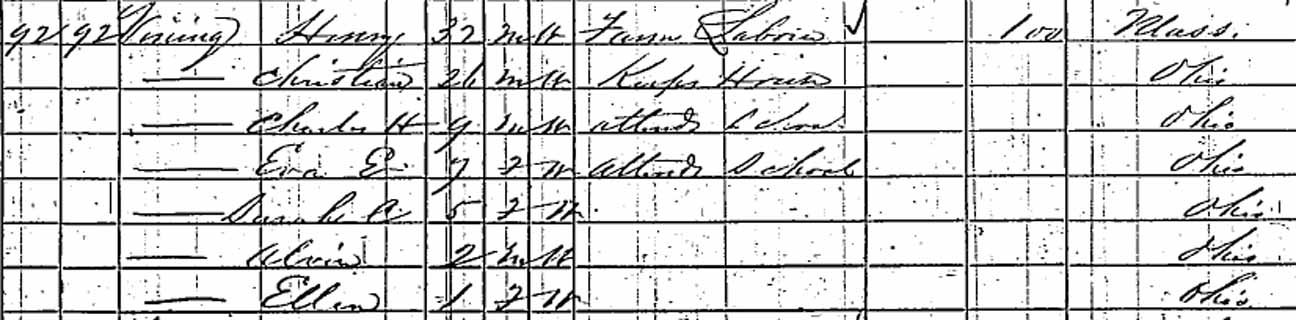 92 92 Vining Henry 32 M W Farm Labore ✓ 100 Mass.
— Christian 26 M W Keeps House Ohio
— Charles H 9 M W attends School Ohio
— Eva E 7 F W attends School Ohio
— 5 F W Ohio
— Alvin 2 M W Ohio
— Ellen 1 F W Ohio